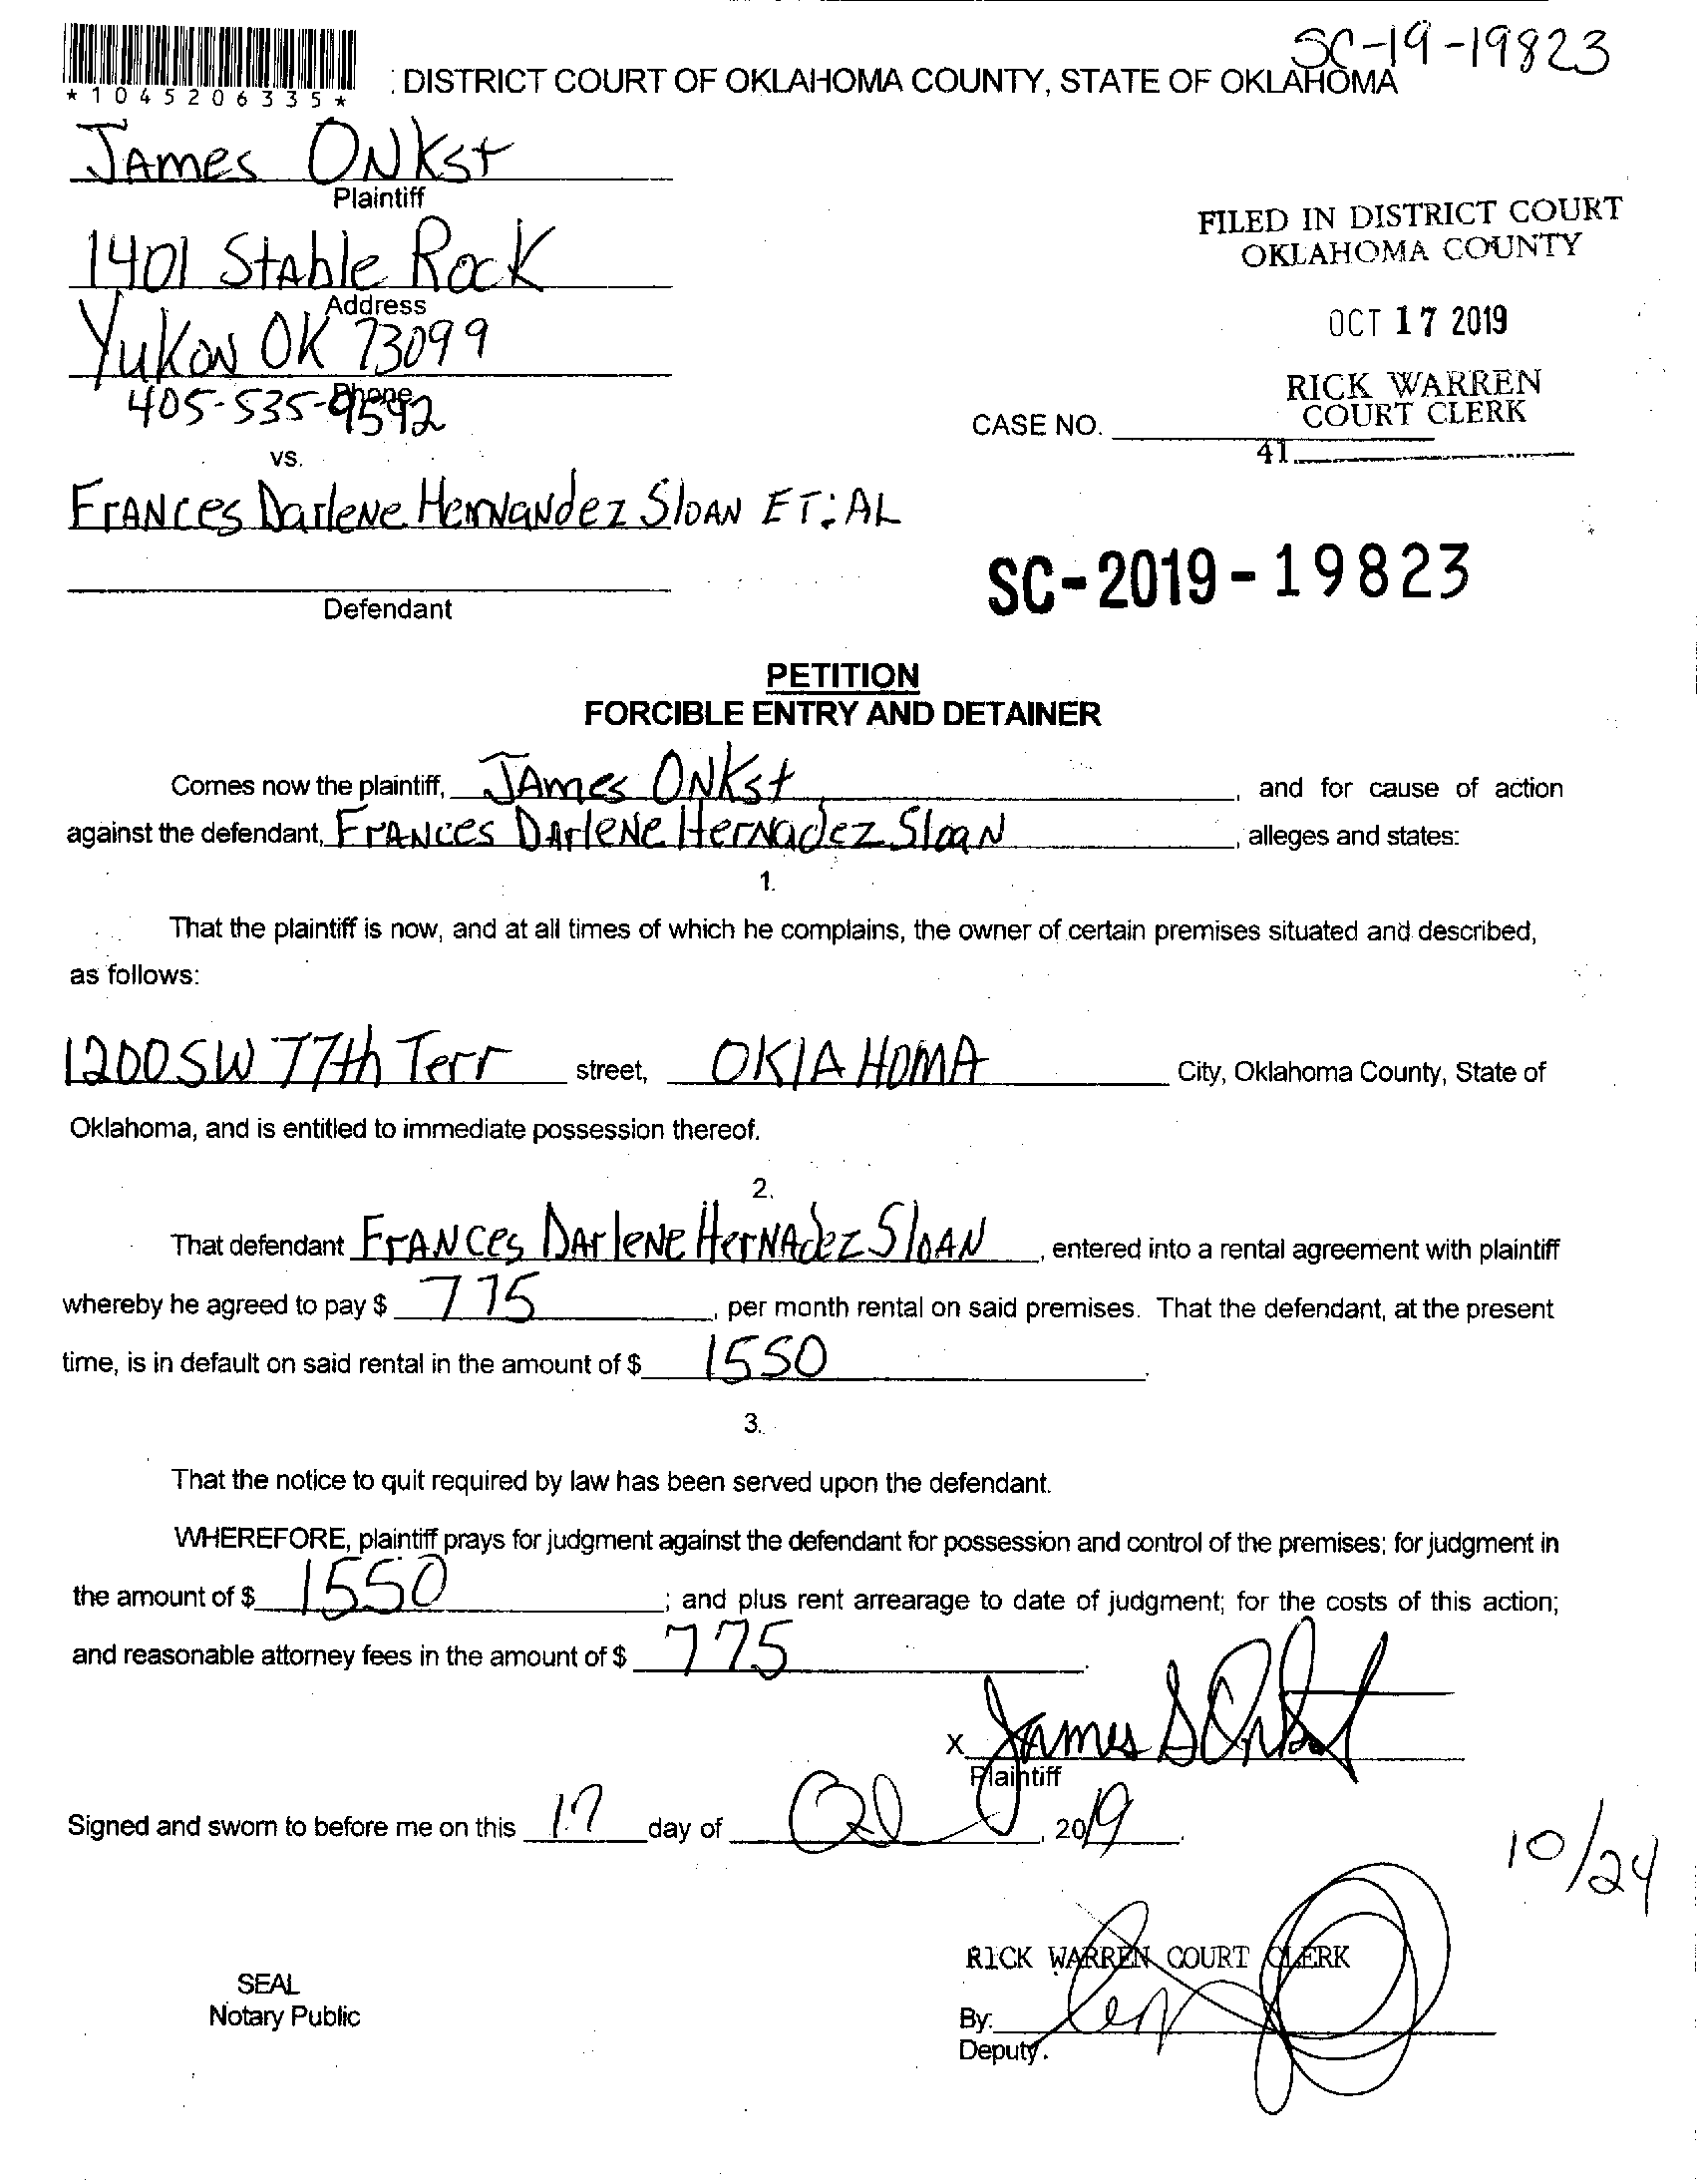 SC-19-19823
*1045206335*
: DISTRICT COURT OF OKLAHOMA COUNTY, STATE OF OKLAHOMA
JAmes ONKst
Plaintiff
1401 StAble Rock
Address
YuKoN OK 73099
Phone
405-535-9592
vs.
FrANces DarleNe HerNaNdez SloAN ET:AL
Defendant
FILED IN DISTRICT COURT
OKLAHOMA COUNTY
OCT 17 2019
RICK WARREN
COURT CLERK
CASE NO.
41
SC-2019-19823
PETITION
FORCIBLE ENTRY AND DETAINER
Comes now the plaintiff, JAmes ONKst, and for cause of action
against the defendant, FrANces DArleNe HerNadez SloaN, alleges and states:
1.
That the plaintiff is now, and at all times of which he complains, the owner of certain premises situated and described,
as follows:
1200 SW 77th Terr street, OKlAHOMA City, Oklahoma County, State of
Oklahoma, and is entitled to immediate possession thereof.
2.
That defendant FrANces DArleNe HerNAdez SloAN, entered into a rental agreement with plaintiff
whereby he agreed to pay $ 775, per month rental on said premises. That the defendant, at the present
time, is in default on said rental in the amount of $ 1550.
3.
That the notice to quit required by law has been served upon the defendant.
WHEREFORE, plaintiff prays for judgment against the defendant for possession and control of the premises; for judgment in
the amount of $ 1550; and plus rent arrearage to date of judgment; for the costs of this action;
and reasonable attorney fees in the amount of $ 775.
X James S Onkst
Plaintiff
Signed and sworn to before me on this 17 day of , 2019
10/24
RICK WARREN COURT CLERK
SEAL
Notary Public
By:
Deputy.